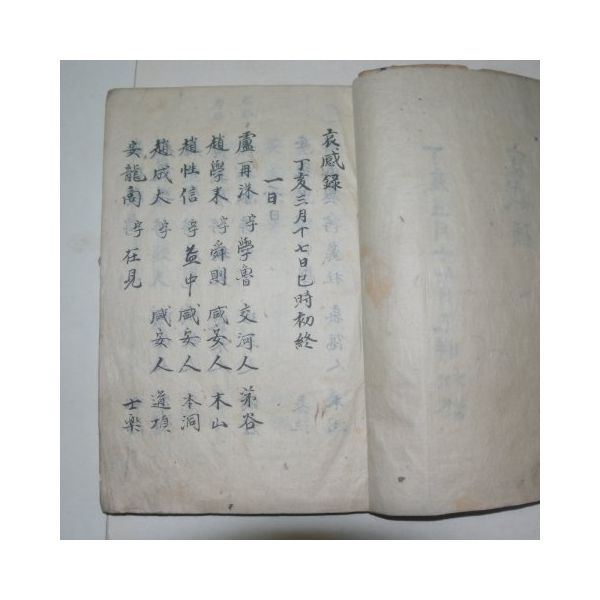 哀感录
丁亥三月十七日巳時初終
一日
盧再洙 字學魯 交河人 茅谷
趙學來 字舜則 咸安人 末山
趙性信 字益中 咸安人 本洞
趙成大 字 咸安人 道項
安龍 字在見 士樂